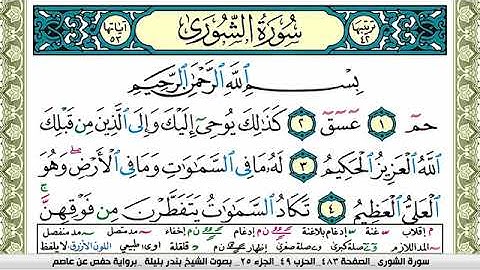 ترتيبها ٤٢ سُورَةُ الشُّورَىٰ آياتها ٥٣
بِسْمِ اللَّهِ الرَّحْمَٰنِ الرَّحِيمِ
حمٓ ۝١ عٓسٓقٓ ۝٢ كَذَٰلِكَ يُوحِىٓ إِلَيْكَ وَإِلَى ٱلَّذِينَ مِن قَبْلِكَ
ٱللَّهُ ٱلْعَزِيزُ ٱلْحَكِيمُ ۝٣ لَهُۥ مَا فِى ٱلسَّمَٰوَٰتِ وَمَا فِى ٱلْأَرْضِ ۖ وَهُوَ
ٱلْعَلِىُّ ٱلْعَظِيمُ ۝٤ تَكَادُ ٱلسَّمَٰوَٰتُ يَتَفَطَّرْنَ مِن فَوْقِهِنَّ ۚ
م إقلاب غنة إدغام بلاغنة م إدغام إخفاء مد متصل مد منفصل
المد اللازم صلة كبرى وصلة صغرى إظهار ن م قلقلة اوى: طبيعي اللون الأزرق لا يلفظ
سورة الشورى _ الصفحة ٤٨٣_ الحزب ٤٩_ الجزء ٢٥ _ بصوت الشيخ بندر بليلة _ برواية حفص عن عاصم